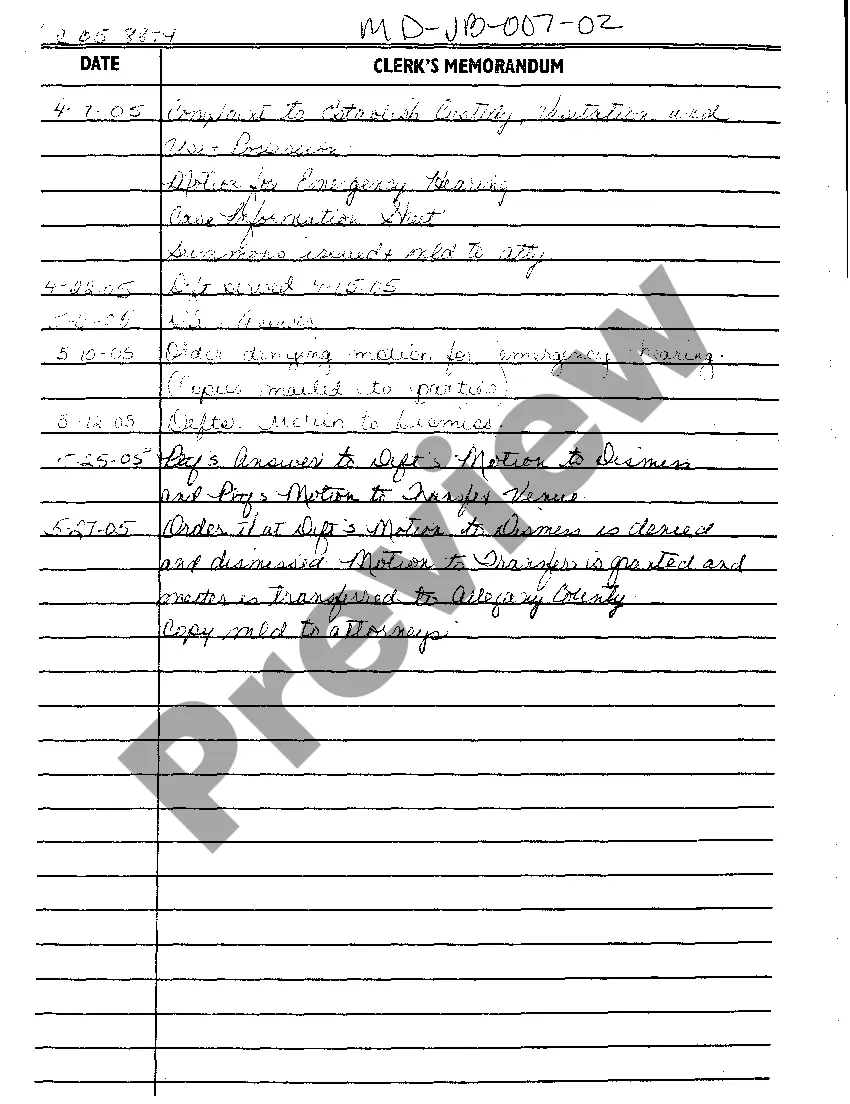 MD-JB-007-02
DATE CLERK'S MEMORANDUM
4-7-05 Complaint to Establish Custody, Visitation and
Use + Possession
Motion for Emergency Hearing
Case Information Sheet
Summons issued + mld to atty
4-22-05 Deft served 4-15-05
Answer
5-10-05 Order denying motion for emergency hearing.
(Copies mailed to parties)
5-12-05 Defts Motion to Dismiss
5-25-05 Answer to Deft's Motion to Dismiss
and Motion to Transfer Venue
5-27-05 Order that Deft's Motion to Dismiss is denied
and dismissed. Motion to Transfer is granted and
matter is transferred to Allegany County
Copy mld to attorneys
Preview